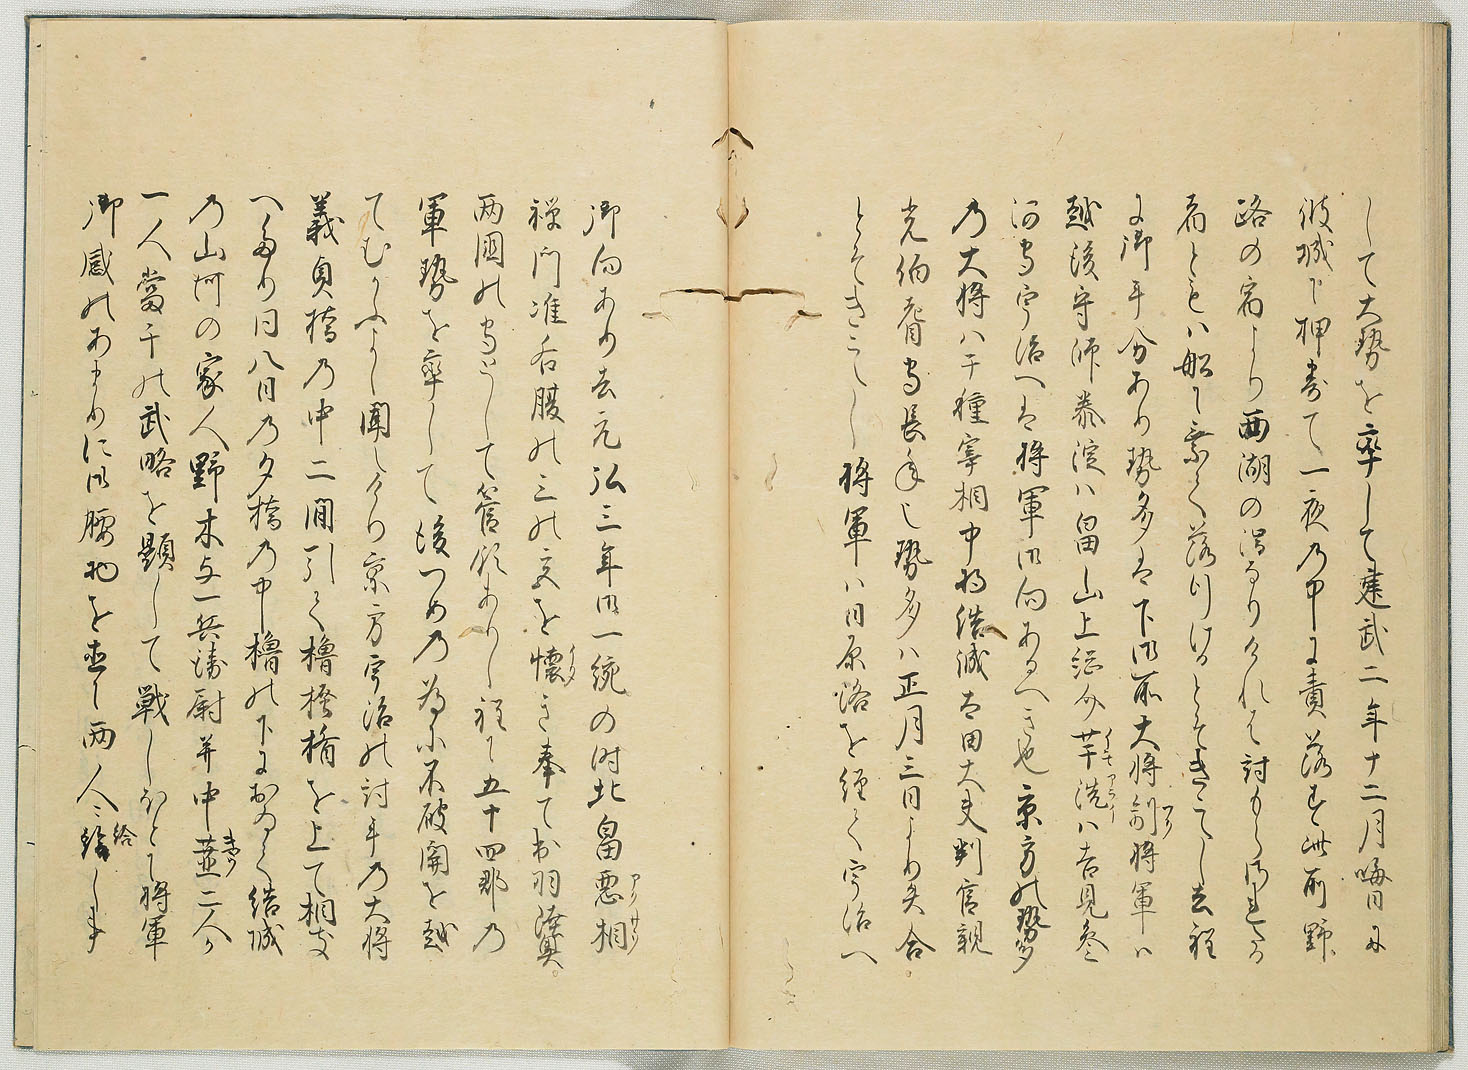 して大勢を率して建武二年十二月晦日に
彼城に押寄て一夜の中に責落さる此所野
路の宿より西湖の渇なりけれは討もらさるゝ
者ともは船に乗て落行けるとそきこえし去程
に御手分あり勢多は下御所大将副将軍は
越後守師泰淀は畠山上総介芋洗は吉見参
河守宇治へは将軍御向あるへき也京方の勢多
の大将は千種宰相中将結城太田大夫判官親
光伯耆守長年也勢多は正月三日より矢合
とそきこえし将軍は日原路を経て宇治へ
御向あり去元弘三年御一統の時北畠悪相
禅門准后腹の三の宮を懐き奉て出羽陸奥
両国の守として管領ありし程に五十四郡の
軍勢を率して後つめの為に不破関を越
てむかふよし聞えけり京方宇治の討手の大将
義貞橋の中二間引て櫓掻楯を上て相支
へたり同八日の夕橋の中櫓の下におゐて結城
の山河の家人野木与一兵衛尉并中葦二人か
一人当千の武略を顕して戦しほとに将軍
御感のあまりに御腰物を直に両人に給し事